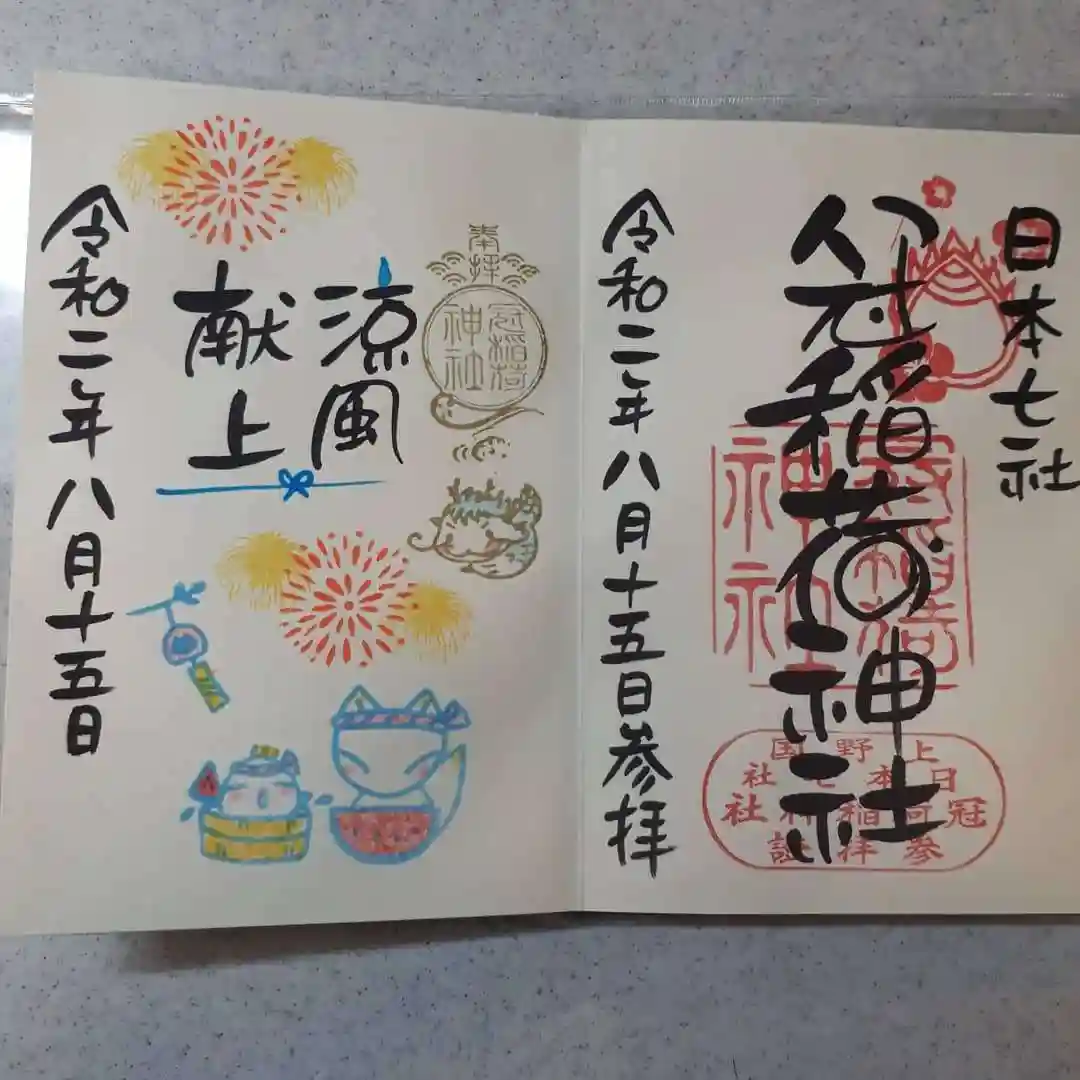 日本七社
冠稲荷神社
上野国
日本七社
冠稲荷神社
参拝証
令和二年八月十五日参拝
奉拝
冠稲荷
神社
涼風
献上
令和二年八月十五日